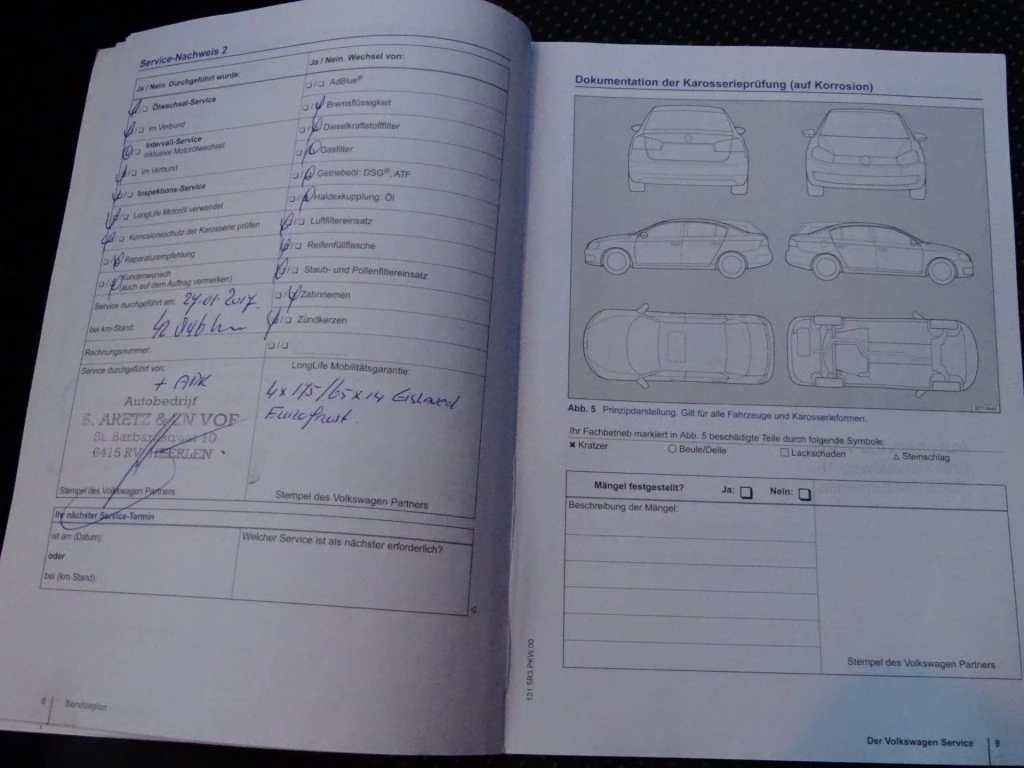 Service-Nachweis 2
Ja / Nein. Durchgeführt wurde:
Ölwechsel-Service
im Verbund
Intervall-Service
inklusive Motorölwechsel
im Verbund
Inspektions-Service
LongLife Motoröl verwendet
Korrosionsschutz der Karosserie prüfen
Reparaturempfehlung
Kundenwunsch
(auch auf dem Auftrag vermerken)
Service durchgeführt am: 27.01.2017.
bei km-Stand:
Rechnungsnummer:
Service durchgeführt von:
+ APK
Autobedrijf
S. ARETZ & ZN VOF
St. Barbarastraat 10
6415 RV HEERLEN
Stempel des Volkswagen Partners
Ja / Nein. Wechsel von:
AdBlue®
Bremsflüssigkeit
Dieselkraftstofffilter
Gasfilter
Getriebeöl: DSG®, ATF
Haldexkupplung: Öl
Luftfiltereinsatz
Reifenfüllflasche
Staub- und Pollenfiltereinsatz
Zahnriemen
Zündkerzen
LongLife Mobilitätsgarantie:
4x175/65x14 Gislaved
Eurofrost.
Stempel des Volkswagen Partners
Ihr nächster Service-Termin
ist am (Datum):
oder
bei (km-Stand):
Welcher Service ist als nächster erforderlich?
8 Serviceplan
Dokumentation der Karosserieprüfung (auf Korrosion)
Abb. 5 Prinzipdarstellung. Gilt für alle Fahrzeuge und Karosserieformen.
Ihr Fachbetrieb markiert in Abb. 5 beschädigte Teile durch folgende Symbole:
× Kratzer ○ Beule/Delle □ Lackschaden △ Steinschlag
Mängel festgestellt? Ja: Nein:
Beschreibung der Mängel:
Stempel des Volkswagen Partners
131.5R3.PKW.00
Der Volkswagen Service 9